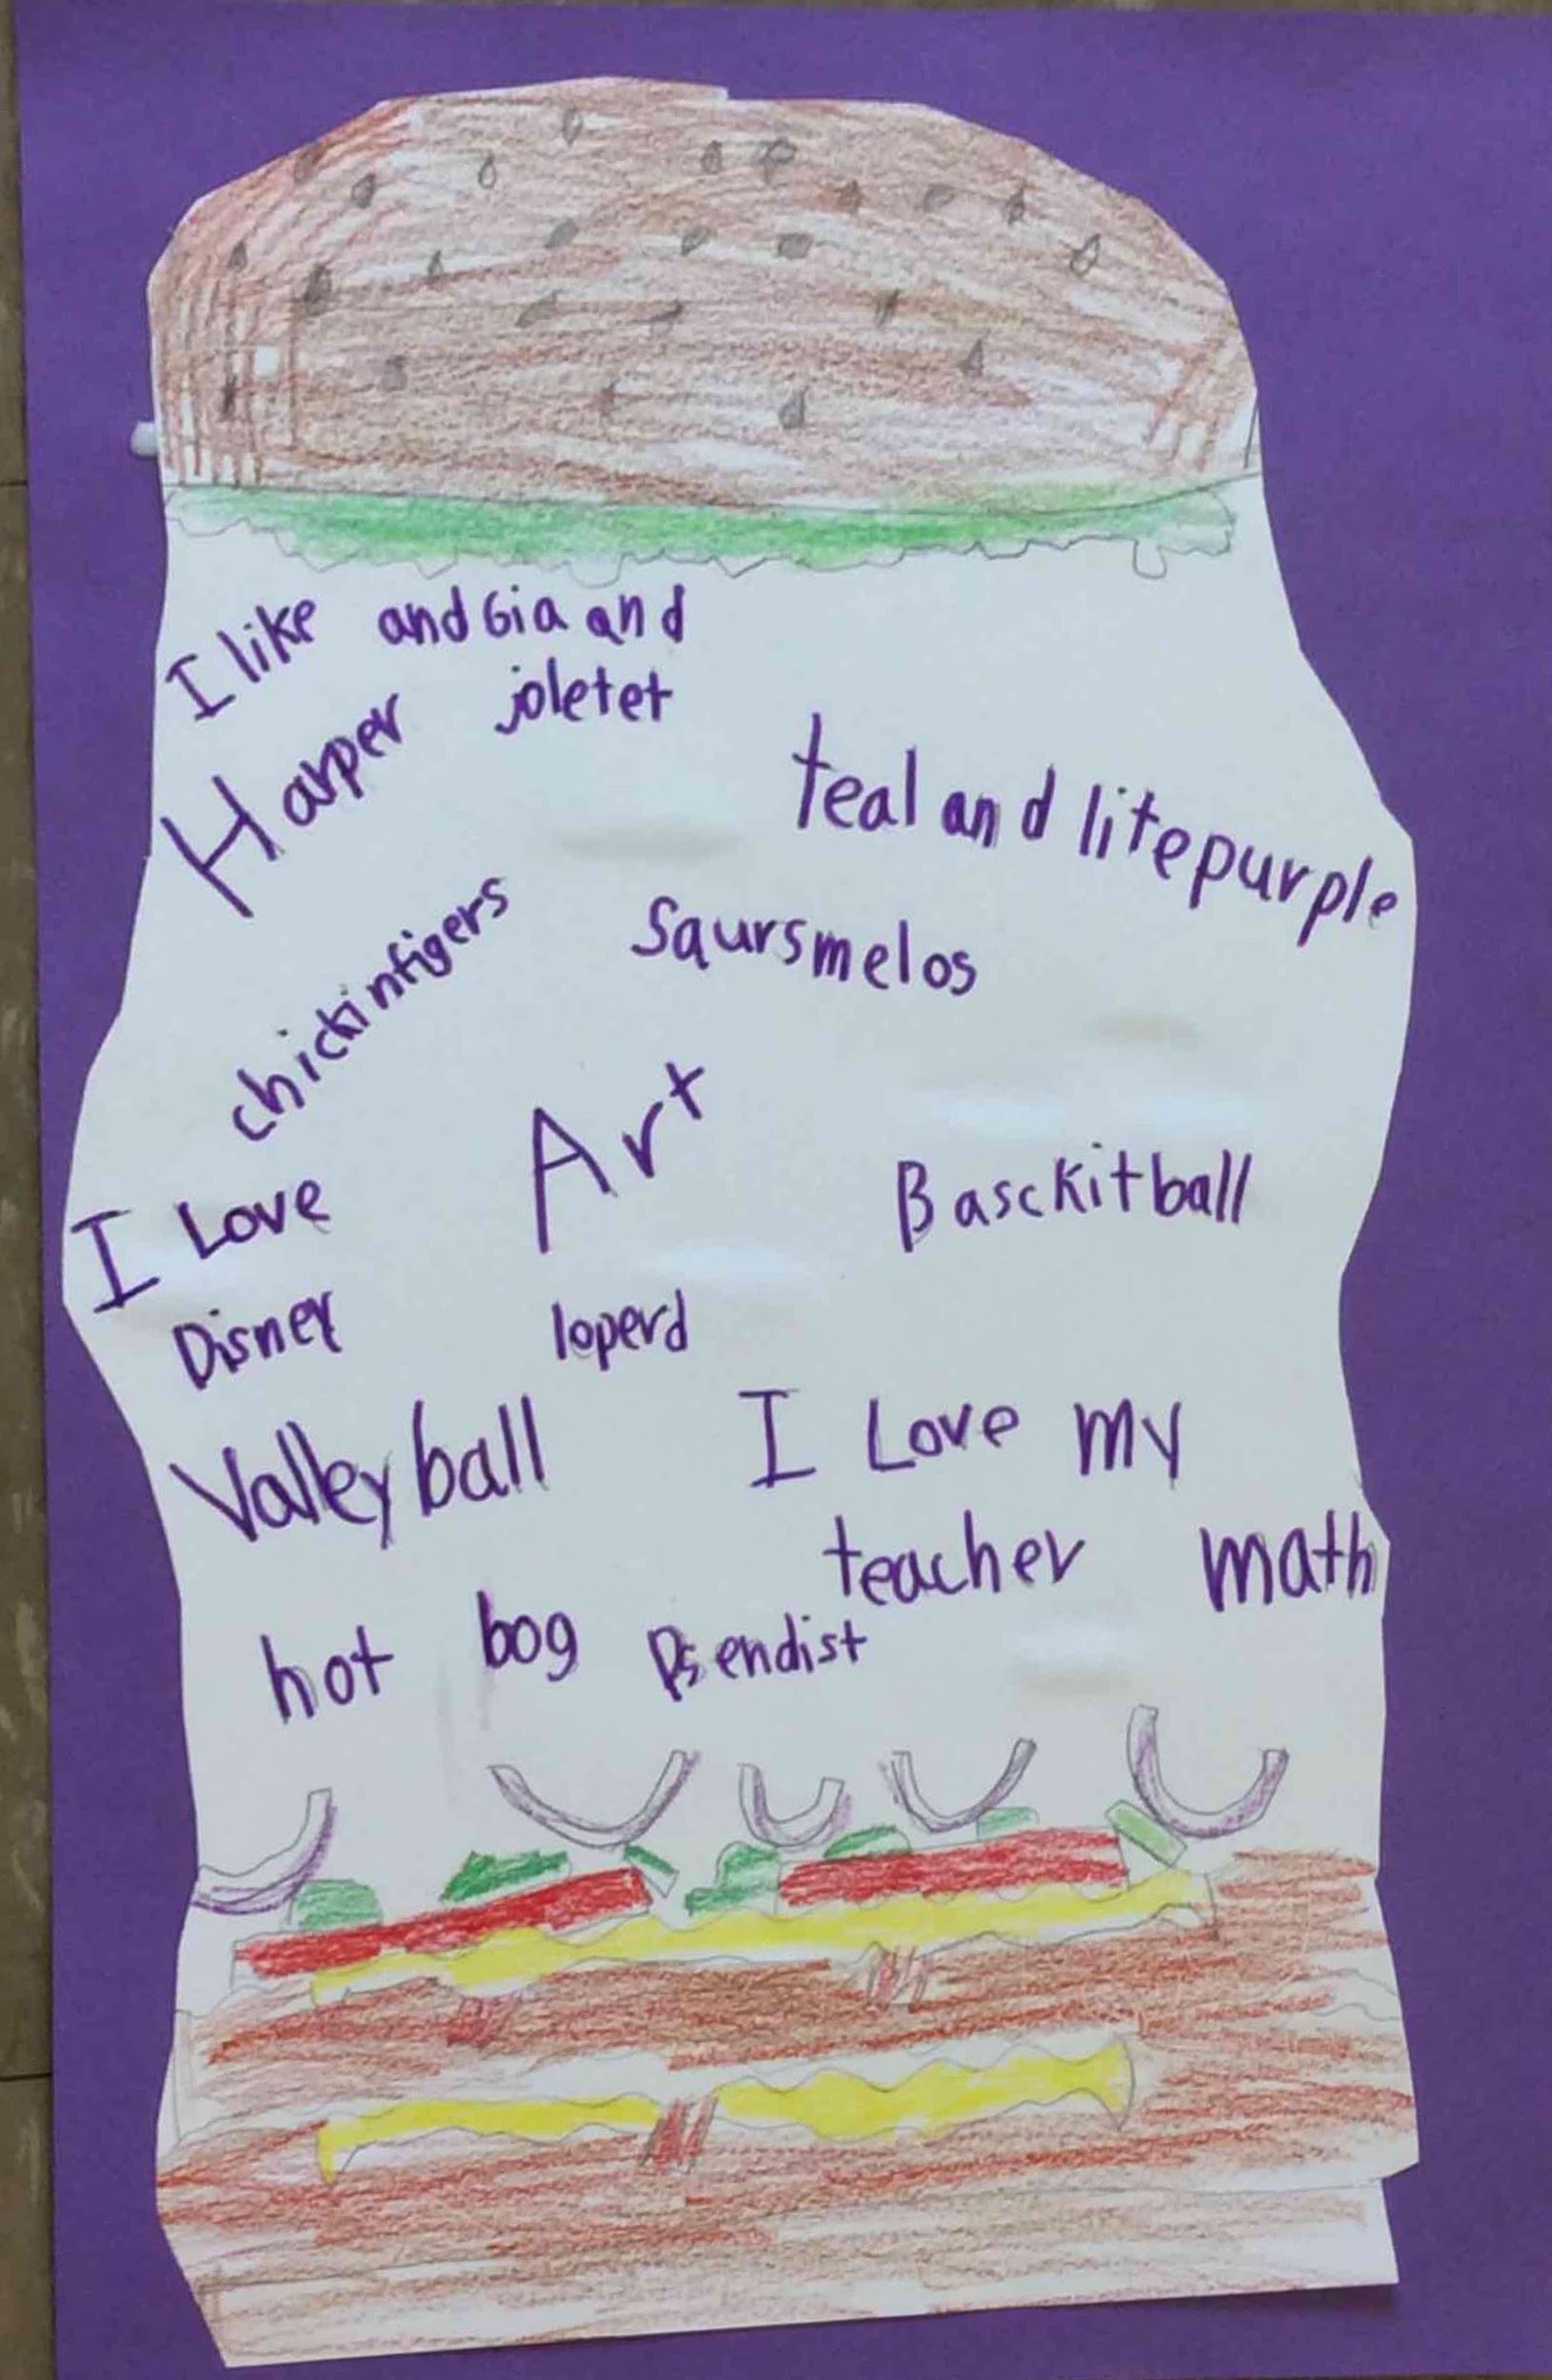 I like and Gia and
Harper joletet
teal and litepurple
chickinfigers
Saursmelos
Art
I Love
Disney
Basckitball
loperd
Valleyball
I Love my
teacher
math
hot bog
Psendist